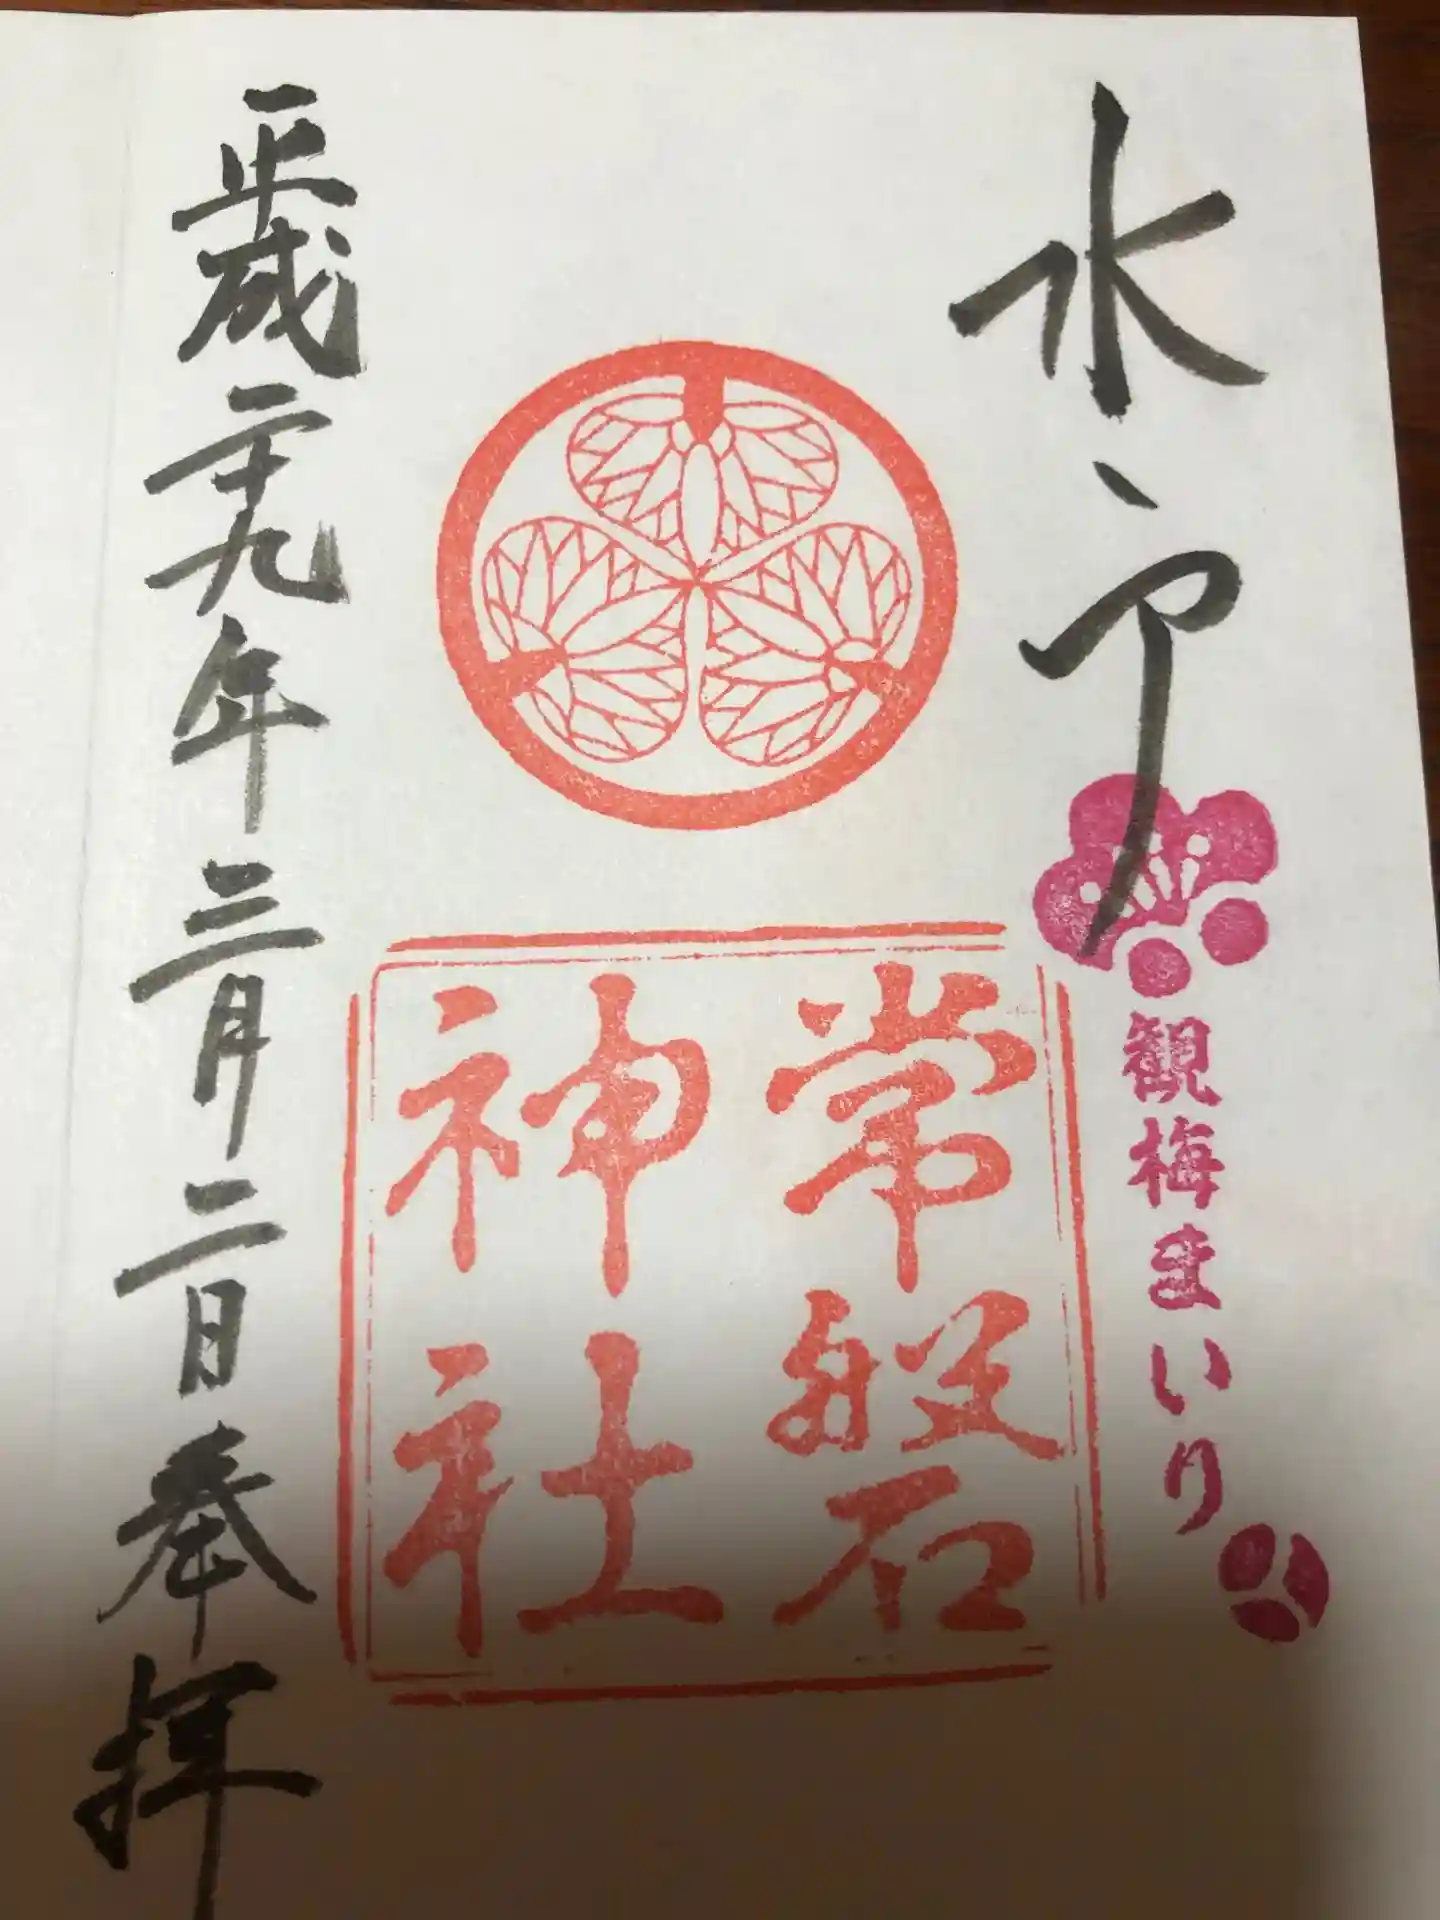 水戸
観梅まいり
常磐
神社
平成二十九年三月二日奉拝